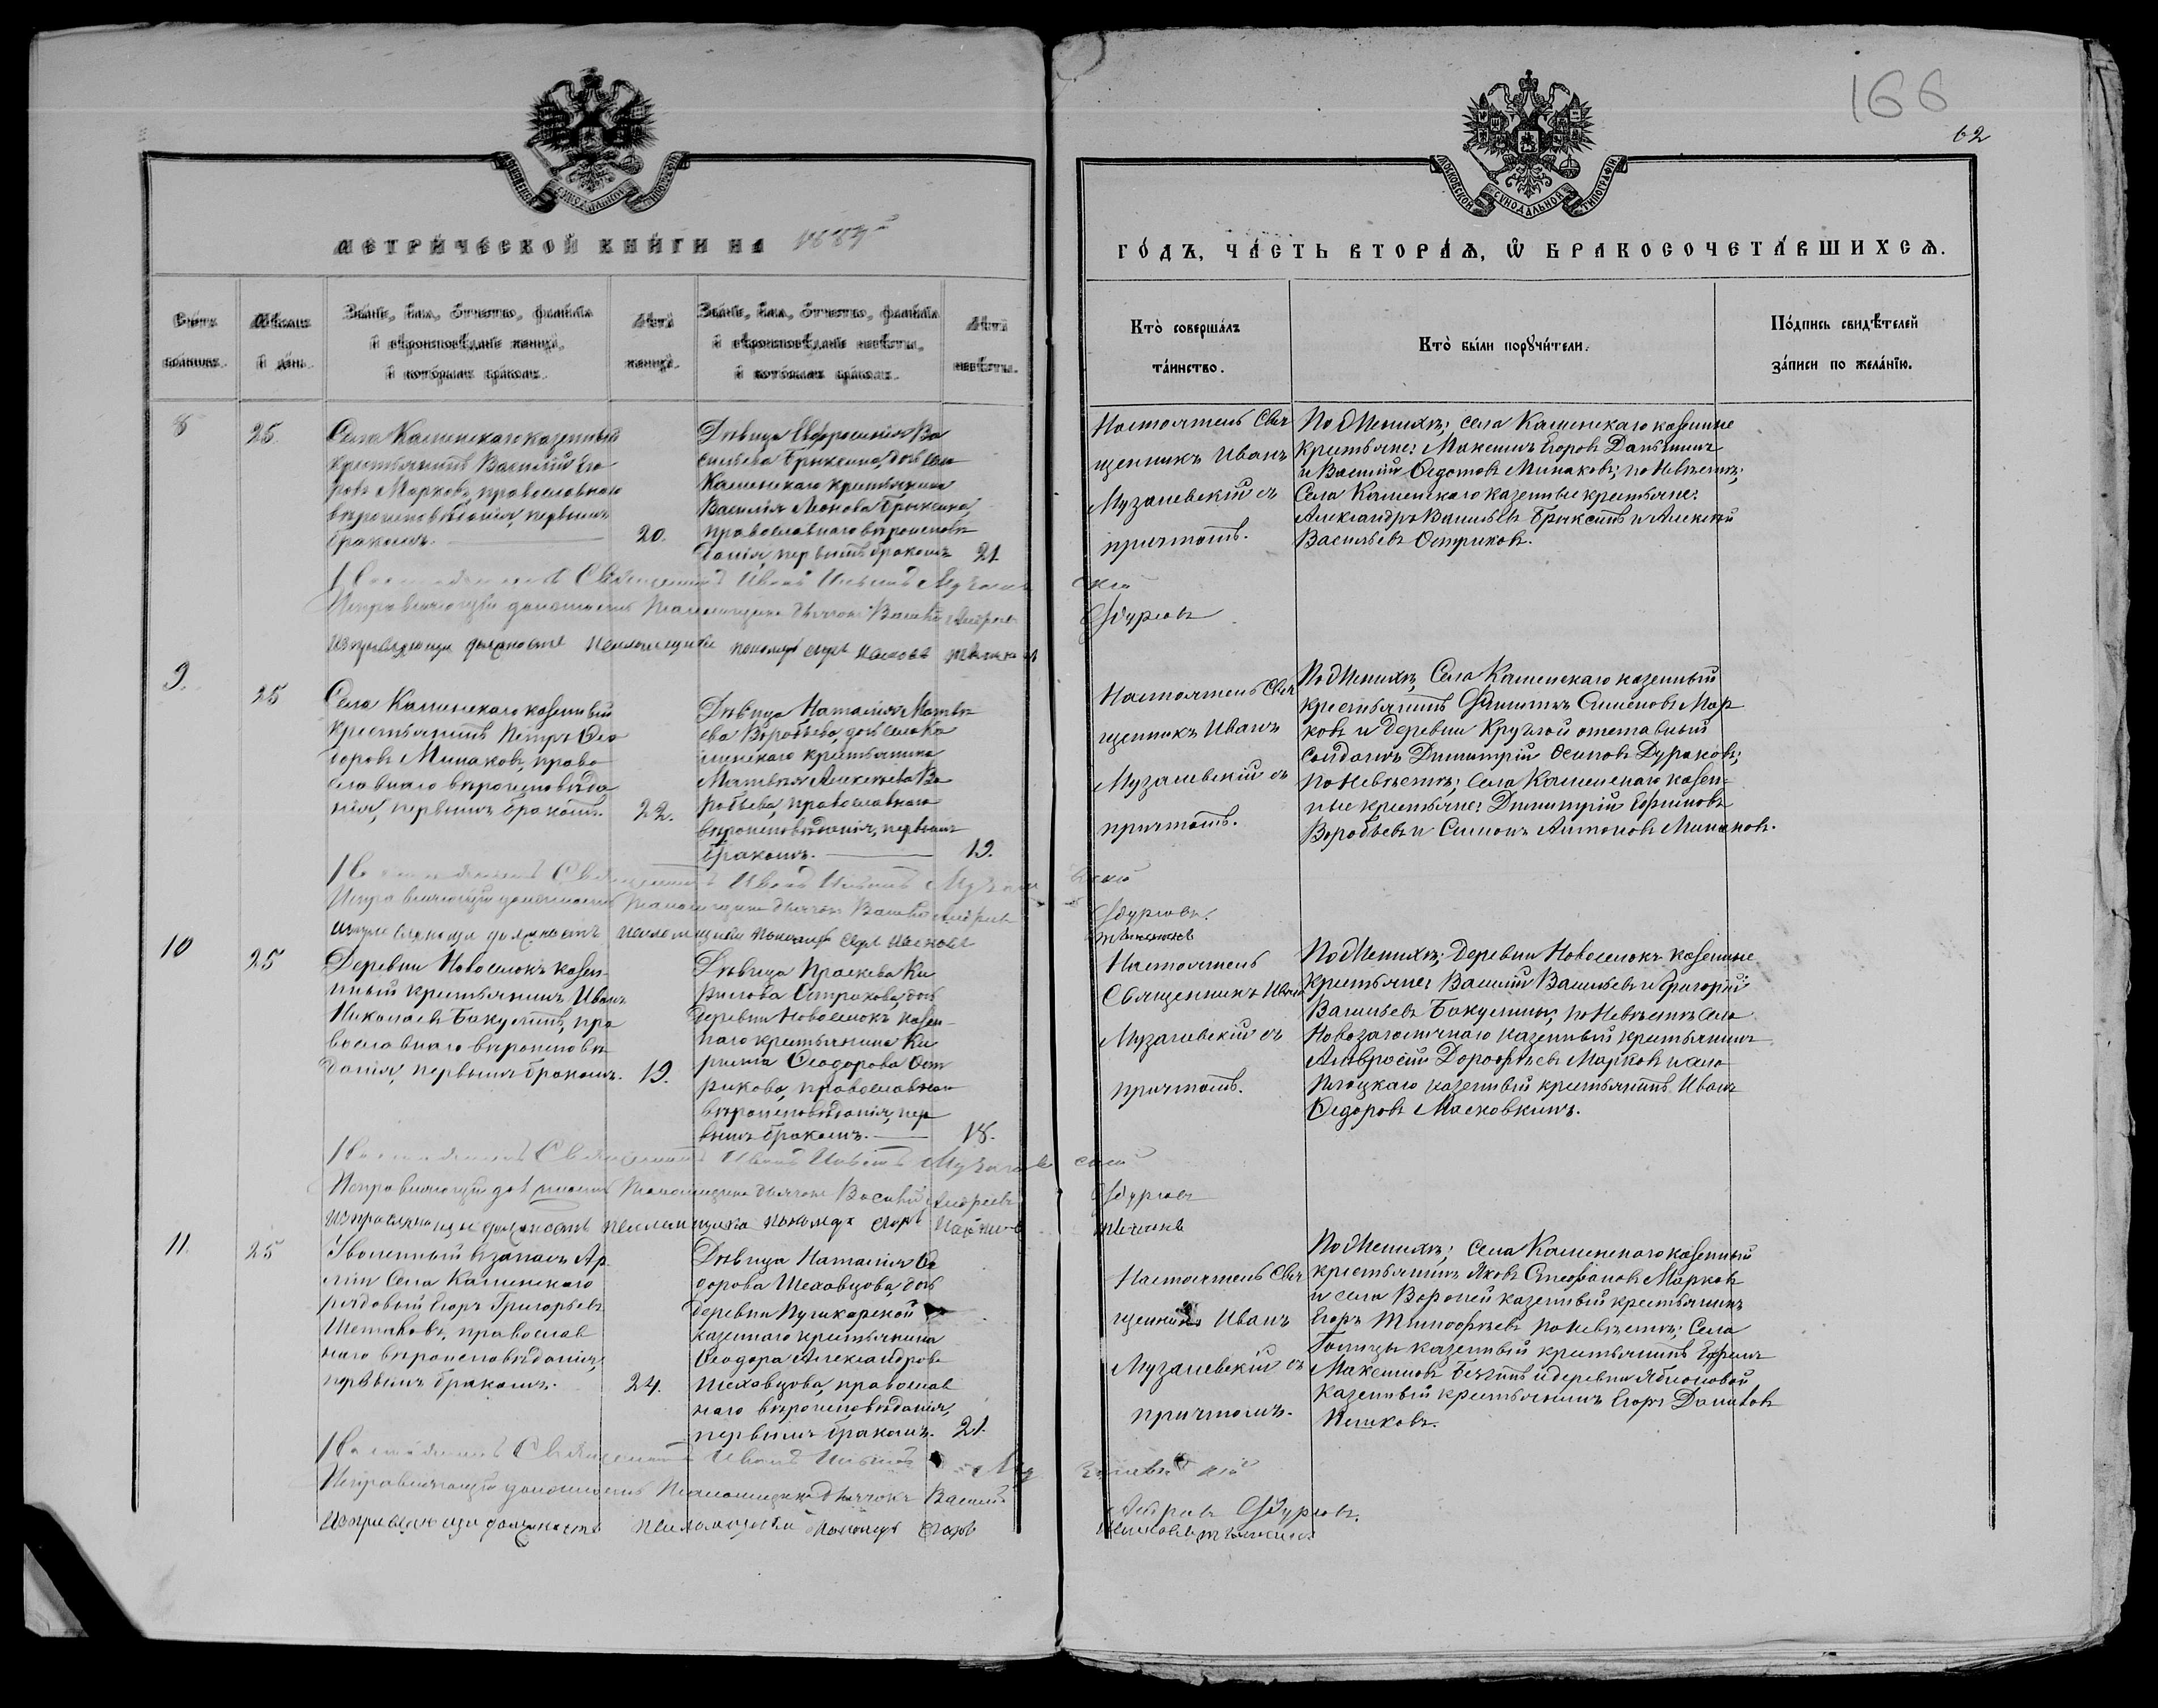 166
62
МОСКОВСКОЙ СѴНОДАЛЬНОЙ ТИПОГРАФІИ
МЕТРИЧЕСКОЙ КНИГИ НА
ГОДЪ, ЧАСТЬ ВТОРАЯ, Ѡ БРАКОСОЧЕТАВШИХСЯ.
Счетъ браковъ.
Мѣсяцъ и день.
Званіе, имя, отчество, фамилія
и вѣроисповѣданіе жениха,
и которымъ бракомъ.
Лѣта жениха.
Званіе, имя, отчество, фамилія
и вѣроисповѣданіе невѣсты,
и которымъ бракомъ.
Лѣта невѣсты.
Кто совершалъ
таинство.
Кто были поручители.
Подпись свидѣтелей
записи по желанію.
8
25.
Села Каменскаго казенный
крестьянинъ Василій Его
ровъ Марковъ, православнаго
вѣроисповѣданія, первымъ
бракомъ.
20.
Дѣвица Евфросинія Ва
сильева Брыксина, дочь села
Каменскаго крестьянина
Василія Леонова Брыксина,
православнаго вѣроисповѣ
данія, первымъ бракомъ
21
Настоятель Свя
щенникъ Иванъ
Музалевскій съ
причтомъ.
По Женихѣ; села Каменскаго казенные
крестьяне: Максимъ Егоровъ
и Василій Федотовъ Минаковъ; по Невѣстѣ;
Села Каменскаго казенные крестьяне:
Александръ Васильевъ Брыксинъ и Алексѣй
Васильевъ Остриковъ.
Священникъ Иванъ
Исправляющій должность Псаломщика Дьячокъ Василій Андреевъ
Исправляющи должность псаломщика пономарь Егоръ
9.
25
Села Каменскаго казенный
крестьянинъ Петръ Ѳео
доровъ Минаковъ, право
славнаго вѣроисповѣда
нія, первымъ бракомъ.
22.
Дѣвица Наталія Матвѣ
ева Воробьева, дочь села Ка
менскаго крестьянина
Матвѣя Алексѣева Во
робьева, православнаго
вѣроисповѣданія, первымъ
бракомъ.
19.
Настоятель Свя
щенникъ Иванъ
Музалевскій съ
причтомъ.
По Женихѣ, Села Каменскаго казенный
крестьянинъ Симеоновъ Мар
ковъ и деревни Круглой отставный
солдатъ Димитрій Осиповъ Дураковъ;
по Невѣстѣ; Села Каменскаго казен-
ные крестьяне: Димитрій Ефимовъ
Воробьевъ и Симонъ Антоновъ Минаковъ.
Священникъ Иванъ
Исправляющій должность Псаломщика Дьячокъ Василій Андреевъ
должность псаломщика пономарь Егоръ
10
25
Деревни Новоселокъ казен-
ный крестьянинъ Иванъ
Николаевъ Бакулинъ, пра
вославнаго вѣроисповѣ
данія, первымъ бракомъ.
19.
Дѣвица Праскева Ки
рилова Острикова, дочь
деревни Новоселокъ казен-
наго крестьянина Ки
рилла Ѳеодорова Ост
рикова, православнаго
вѣроисповѣданія, пер
вымъ бракомъ.
18.
Настоятель
Священникъ Иванъ
Музалевскій съ
причтомъ.
По Женихѣ; деревни Новоселокъ казенные
крестьяне: Василій Васильевъ и Григорій
Васильевъ Бакулины; по Невѣстѣ села
казенный крестьянинъ
Амвросій Дорофѣевъ Марковъ и села
Плоцкаго казенный крестьянинъ Иванъ
Ѳедоровъ Масковкинъ.
Священникъ Иванъ
Исправляющій должность Псаломщика Дьячокъ Василій Андреевъ
Исправляющи должность псаломщика пономарь Егоръ
11.
25
Уволенный въ запасъ Ар
міи Села Каменскаго
рядовый Егоръ Григорьевъ
православ
наго вѣроисповѣданія,
первымъ бракомъ.
24.
Дѣвица Наталія Ѳе
дорова Шеховцова, дочь
деревни Пушкарской
казеннаго крестьянина
Ѳеодора Александрова
Шеховцова, православ
наго вѣроисповѣданія,
первымъ бракомъ.
21.
Настоятель Свя
щенникъ Иванъ
Музалевскій съ
причтомъ.
По Женихѣ; села Каменскаго казенный
крестьянинъ Яковъ Стефановъ Марковъ
и села Вороней казенный крестьянинъ
Егоръ Тимофѣевъ по Невѣстѣ; Села
казенный крестьянинъ Ефимъ
Максимовъ и деревни Яблоновой
казенный крестьянинъ Егоръ
Пешковъ.
Священникъ Иванъ
Исправляющій должность Псаломщика Дьячокъ Василій
Исправляющи должность псаломщика пономарь Егоръ